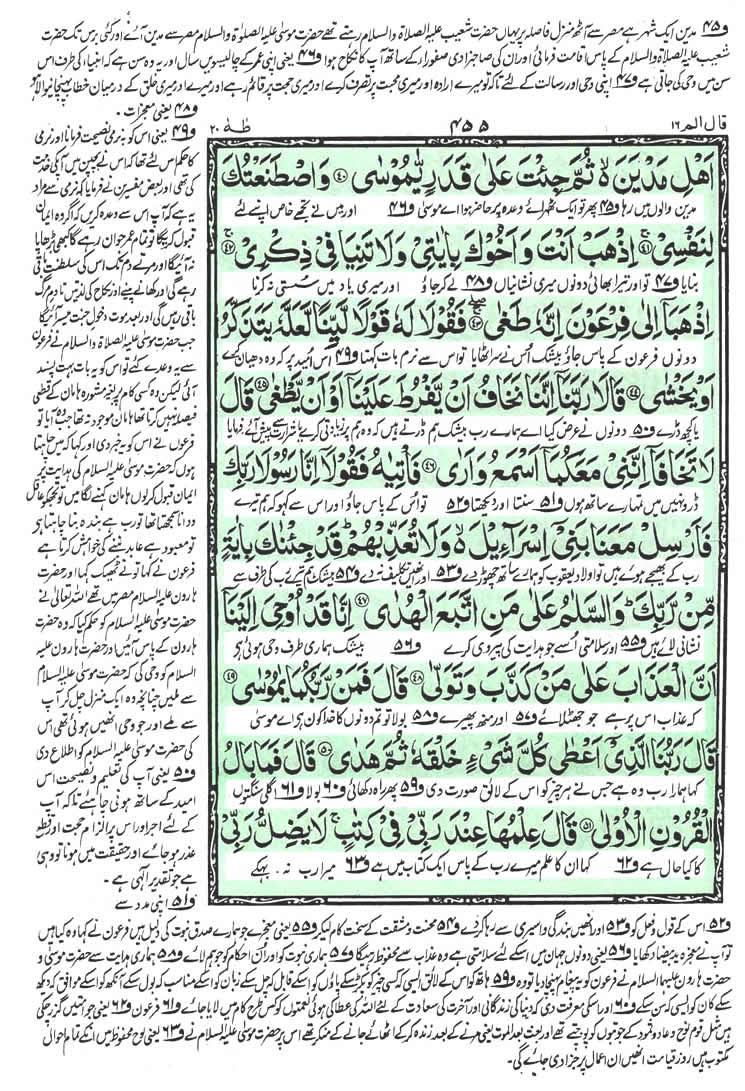 و۴۵ مدین ایک شہر ہے مصر سے آٹھ منزل فاصلہ پر یہاں حضرت شعیب علیہ الصلاۃ والسلام رہتے تھے حضرت موسٰی علیہ الصلوٰۃ والسلام مصر سے مدین آئے اور کئی برس تک حضرت
شعیب علیہ الصلاۃ والسلام کے پاس اقامت فرمائی اور ان کی صاحبزادی صفوراء کے ساتھ آپ کا نکاح ہوا و۴۶ یعنی اپنی عمر کے چالیسویں سال اور یہ وہ سن ہے کہ انبیاء کی طرف اس
سن میں وحی کی جاتی ہے و۴۷ اپنی وحی اور رسالت کے لئے تاکہ تو میرے ارادہ اور میری محبت پر تصرف کرے اور میری حجت پر قائم رہے اور میرے اور میری خلق کے درمیان خطاب پہنچانیوالا ہو
و۴۸ یعنی معجزات۔
قال الم ۱۶
۴۵۵
طٰهٰ ۲۰
اَهْلِ مَدْیَنَ ﳔ ثُمَّ جِئْتَ عَلٰى قَدَرٍ یّٰمُوْسٰى ﴿۴۰﴾ وَ اصْطَنَعْتُكَ
مدین والوں میں رہا و۴۵ پھر تو ایک ٹھہرائے وعدہ پر حاضر ہوا اے موسٰی و۴۶ اور میں نے تجھے خاص اپنے لئے
لِنَفْسِیْ ﴿۴۱﴾ اِذْهَبْ اَنْتَ وَ اَخُوْكَ بِاٰیٰتِیْ وَ لَا تَنِیَا فِیْ ذِكْرِیْ ﴿۴۲﴾
بنایا و۴۷ تو اور تیرا بھائی دونوں میری نشانیاں و۴۸ لے کر جاؤ اور میری یاد میں سُستی نہ کرنا
اِذْهَبَاۤ اِلٰى فِرْعَوْنَ اِنَّهٗ طَغٰى ﴿۴۳﴾ فَقُوْلَا لَهٗ قَوْلًا لَّیِّنًا لَّعَلَّهٗ یَتَذَكَّرُ
دونوں فرعون کے پاس جاؤ بیشک اُس نے سر اٹھایا تو اس سے نرم بات کہنا و۴۹ اس اُمید پر کہ وہ دھیان کرے
اَوْ یَخْشٰى ﴿۴۴﴾ قَالَا رَبَّنَاۤ اِنَّنَا نَخَافُ اَنْ یَّفْرُطَ عَلَیْنَاۤ اَوْ اَنْ یَّطْغٰى ﴿۴۵﴾ قَالَ
یا کچھ ڈرے و۵۰ دونوں نے عرض کیا اے ہمارے رب بیشک ہم ڈرتے ہیں کہ وہ ہم پر زیادتی کرے یا شرارت سے پیش آئے فرمایا
لَا تَخَافَاۤ اِنَّنِیْ مَعَكُمَاۤ اَسْمَعُ وَ اَرٰى ﴿۴۶﴾ فَاْتِیٰهُ فَقُوْلَاۤ اِنَّا رَسُوْلَا رَبِّكَ
ڈرو نہیں میں تمہارے ساتھ ہوں و۵۱ سنتا اور دیکھتا و۵۲ تو اُس کے پاس جاؤ اور اس سے کہو کہ ہم تیرے
فَاَرْسِلْ مَعَنَا بَنِیْۤ اِسْرَآءِیْلَ ﳔ وَ لَا تُعَذِّبْهُمْؕ قَدْ جِئْنٰكَ بِاٰیَةٍ
رب کے بھیجے ہوئے ہیں تو اولاد یعقوب کو ہمارے ساتھ چھوڑ دے و۵۳ اور انھیں تکلیف نہ دے و۵۴ بیشک ہم تیرے رب کی طرف سے
مِّنْ رَّبِّكَؕ وَ السَّلٰمُ عَلٰى مَنِ اتَّبَعَ الْهُدٰى ﴿۴۷﴾ اِنَّا قَدْ اُوْحِیَ اِلَیْنَاۤ
نشانی لائے ہیں و۵۵ اور سلامتی اُسے جو ہدایت کی پیروی کرے و۵۶ بیشک ہماری طرف وحی ہوئی ہے
اَنَّ الْعَذَابَ عَلٰى مَنْ كَذَّبَ وَ تَوَلّٰى ﴿۴۸﴾ قَالَ فَمَنْ رَّبُّكُمَا یٰمُوْسٰى ﴿۴۹﴾
کہ عذاب اس پر ہے جو جھٹلائے و۵۷ اور منھ پھیرے و۵۸ بولا تو تم دونوں کا خدا کون ہے اے موسٰی
قَالَ رَبُّنَا الَّذِیْۤ اَعْطٰى كُلَّ شَیْءٍ خَلْقَهٗ ثُمَّ هَدٰى ﴿۵۰﴾ قَالَ فَمَا بَالُ
کہا ہمارا رب وہ ہے جس نے ہر چیز کو اس کے لائق صورت دی و۵۹ پھر راہ دکھائی و۶۰ بولا و۶۱ اگلی سنگتوں
الْقُرُوْنِ الْاُوْلٰى ﴿۵۱﴾ قَالَ عِلْمُهَا عِنْدَ رَبِّیْ فِیْ كِتٰبٍ ۚ لَا یَضِلُّ رَبِّیْ
کا کیا حال ہے و۶۲ کہا ان کا علم میرے رب کے پاس ایک کتاب میں ہے و۶۳ میرا رب نہ بہکے
و۴۹ یعنی اس کو بہ نرمی نصیحت فرمانا اور نرمی
کا حکم اس لئے تھا کہ اس نے بچپن میں آپ کی خدمت
کی تھی اور بعض مفسرین نے فرمایا کہ نرمی سے مراد
یہ ہے کہ آپ اس سے وعدہ کریں کہ اگر وہ ایمان
قبول کریگا تو تمام عمر جوان رہے گا کبھی بڑھاپا
نہ آئیگا اور مرتے دم تک اس کی سلطنت باقی
رہے گی اور کھانے پینے اور نکاح کی لذتیں تا دم مرگ
باقی رہیں گی اور بعد موت دخولِ جنت میسر آئیگا
جب حضرت موسٰی علیہ الصلاۃ والسلام نے فرعون
سے یہ وعدے کئے تو اس کو یہ بات بہت پسند
آئی لیکن وہ کسی کام پر بغیر مشورہ ہامان کے قطعی
فیصلہ نہیں کرتا تھا ہامان موجود نہ تھا جب وہ آیا تو
فرعون نے اس کو یہ خبر دی اور کہا کہ میں چاہتا
ہوں کہ حضرت موسٰی علیہ السلام کی ہدایت پر
ایمان قبول کر لوں ہامان کہنے لگا میں تو تجھ کو عاقل
و دانا سمجھتا تھا تو رب ہے بندہ بنا چاہتا ہے
تو معبود ہے عابد بننے کی خواہش کرتا ہے
فرعون نے کہا تو نے ٹھیک کہا اور حضرت
ہارون علیہ السلام مصر میں تھے اللہ تعالٰی نے
حضرت موسٰی علیہ السلام کو حکم کیا کہ وہ حضرت
ہارون کے پاس آئیں اور حضرت ہارون علیہ
السلام کو وحی کی کہ حضرت موسٰی علیہ السلام
سے ملیں چنانچہ وہ ایک منزل چل کر آپ
سے ملے اور جو وحی انھیں ہوئی تھی اس
کی حضرت موسٰی علیہ السلام کو اطلاع دی
و۵۰ یعنی آپ کی تعلیم و نصیحت اس
امید کے ساتھ ہونی چاہئے تاکہ آپ
کے لئے اجر اور اس پر الزام حجت اور قطع
عذر ہو جائے اور حقیقت میں ہونا تو وہی
ہے جو تقدیر الٰہی ہے۔
و۵۱ اپنی مدد سے
و۵۲ اس کے قول و فعل کو و۵۳ اور انھیں بندگی و اسیری سے رہا کر دے و۵۴ محنت و مشقت کے سخت کام لیکر و۵۵ یعنی معجزے جو ہمارے صدق نبوت کی دلیل ہیں فرعون نے کہا وہ کیا ہیں
تو آپ نے معجزہ ید بیضا دکھایا و۵۶ یعنی دونوں جہان میں اسکے لئے سلامتی ہے وہ عذاب سے محفوظ رہیگا و۵۷ ہماری نبوت کو اور ان احکام کو جو ہم لائے و۵۸ ہماری ہدایت سے حضرت موسٰی و
حضرت ہارون علیہما السلام نے فرعون کو یہ پیغام پہنچا دیا تو وہ و۵۹ ہاتھ کو اس کے لائق ایسی کہ کسی چیز کو پکڑ سکے پاؤں کو اسکے قابل کہ چل سکے زبان کو اسکے مناسب کہ بول سکے آنکھ کو اسکے موافق کہ دیکھ
سکے کان کو ایسی کہ سن سکے و۶۰ اور اسکی معرفت دی کہ دنیا کی زندگانی اور آخرت کی سعادت کے لئے اللہ کی عطا کی ہوئی نعمتوں کو کس طرح کام میں لایا جائے و۶۱ فرعون و۶۲ یعنی جو امتیں گزر چکی
ہیں مثل قوم نوح و عاد و ثمود کے جو بتوں کو پوجتے تھے اور بعث بعد الموت یعنی مرنے کے بعد زندہ کر کے اٹھائے جانے کے منکر تھے اس پر حضرت موسٰی علیہ السلام نے و۶۳ یعنی لوح محفوظ میں انکے تمام احوال
مکتوب ہیں روزِ قیامت انھیں ان اعمال پر جزا دی جائے گی۔